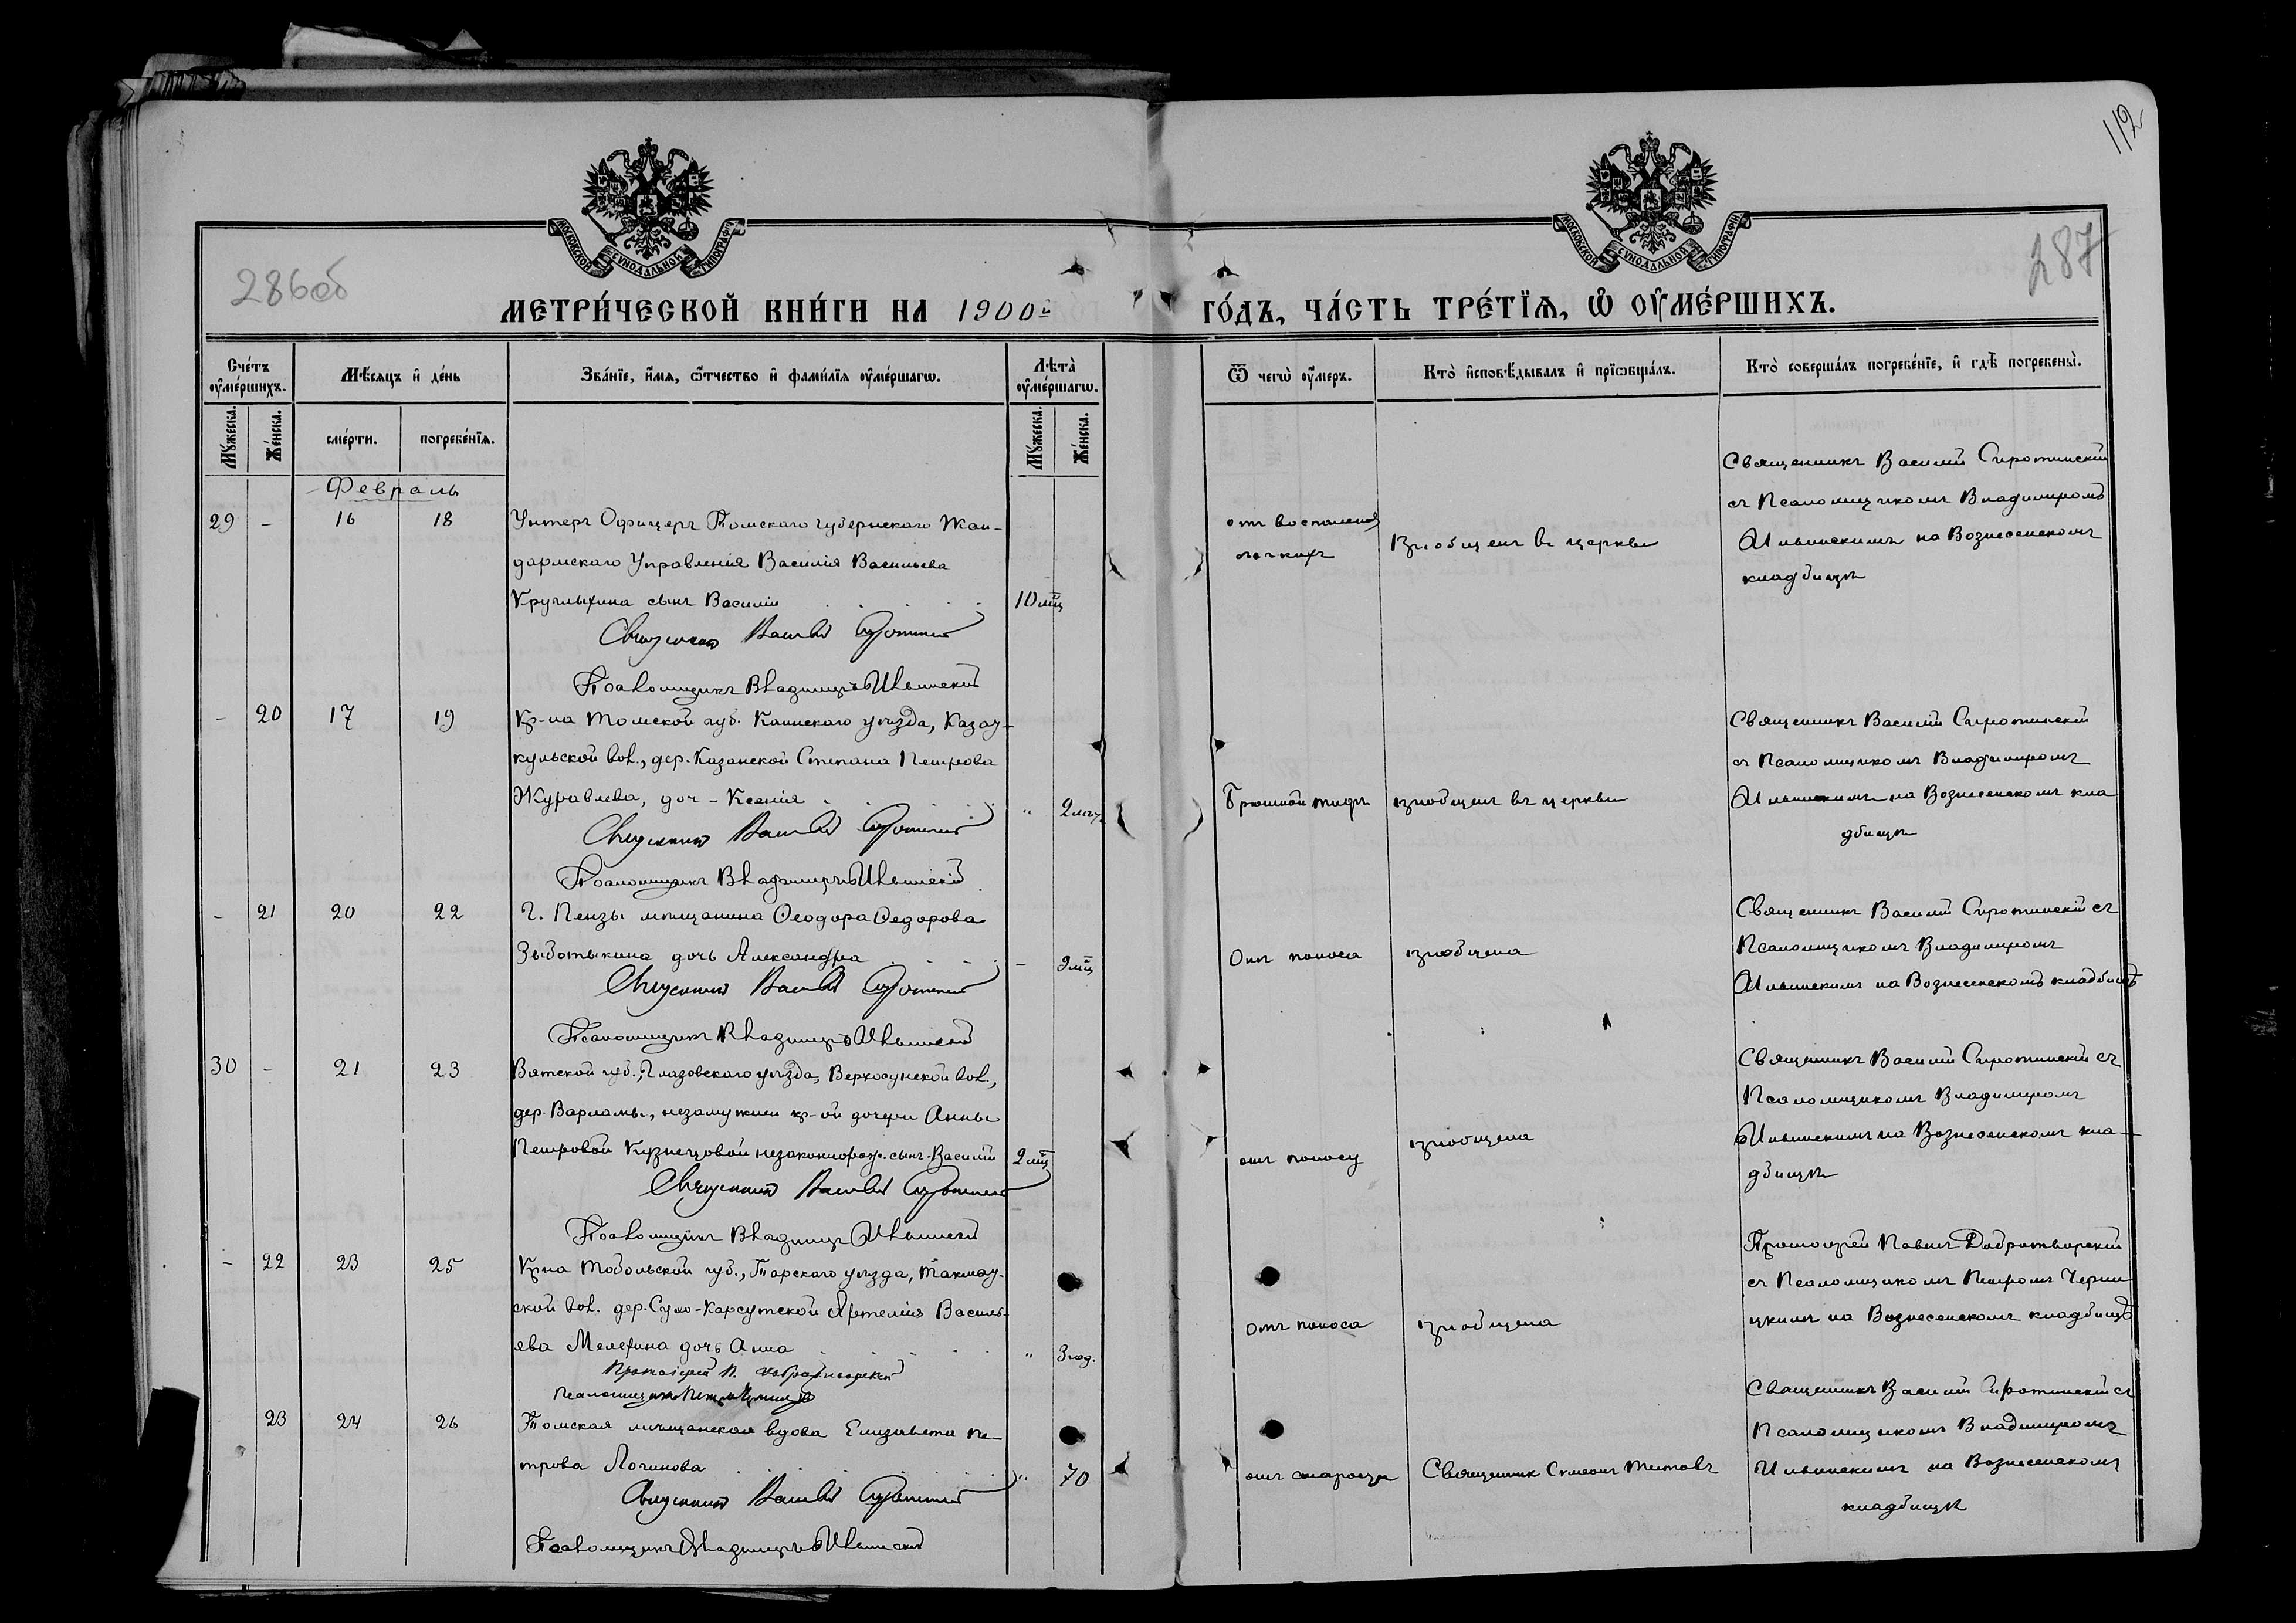 112
286об
287
МОСКОВСКОЙ СѴНОДАЛЬНОЙ ТИПОГРАФІИ
МОСКОВСКОЙ СѴНОДАЛЬНОЙ ТИПОГРАФІИ
МЕТРИ́ЧЕСКОЙ КНИ́ГИ НА 1900й ГО́ДЪ, ЧА́СТЬ ТРЕ́ТЇѦ, Ѡ ОУМЕ́РШИХЪ.
Сче́тъ оуме́ршихъ.
Мꙋ́жеска. Же́нска.
Мѣ́сяцъ и де́нь
сме́рти. погребе́нїѧ.
Зва́нїе, и́мѧ, ѻ́тчество и фами́лїѧ оуме́ршагѡ.
Лѣта̀ оуме́ршагѡ.
Мꙋ́жеска. Же́нска.
Ѿ чегѡ̀ оу́меръ.
Кто̀ и҆сповѣ́дывалъ и҆ прїѡбща́лъ.
Кто̀ соверша́лъ погребе́нїе, и҆ гдѣ̀ погребены̀.
Февраль
29 - 16 18
Унтеръ Офицеръ Томскаго Губернскаго Жан-
дармскаго Управленія Василія Васильева
Круглыхина сынъ Василій 10 мц
Священникъ Василій Сиротинскій
Псаломщикъ Владиміръ Ильинскій
отъ воспаленія
легкихъ
Пріобщенъ въ церкви
Священникъ Василій Сиротинскій
съ Псаломщикомъ Владиміромъ
Ильинскимъ на Вознесенскомъ
кладбищѣ
- 20 17 19
Кр-на Томской губ. Каинскаго уѣзда, Казат-
кульской вол., дер. Казанской Степана Петрова
Журавлева, доч - Ксенія " 2 лѣт.
Священникъ Василій Сиротинскій
Псаломщикъ Владиміръ Ильинскій
Брюшной тифъ
пріобщенъ въ церкви
Священникъ Василій Сиротинскій
съ Псаломщикомъ Владиміромъ
Ильинскимъ на Вознесенскомъ кла
дбищѣ
- 21 20 22
Г. Пензы мѣщанина Ѳеодора Ѳедорова
дочь Александра - 9 мц
Священникъ Василій Сиротинскій
Псаломщикъ Владиміръ Ильинскій
Отъ поноса
пріобщена
Священникъ Василій Сиротинскій съ
Псаломщикомъ Владиміромъ
Ильинскимъ на Вознесенскомъ кладбищѣ
30 - 21 23
Вятской губ., Глазовскаго уѣзда, Верхосунской вол.,
дер. Варламы, незамужней кр-ой дочери Анны
Петровой Кузнецовой незаконнорож. сынъ Василій 2 мц
Священникъ Василій Сиротинскій
Псаломщикъ Владиміръ Ильинскій
отъ поносу
пріобщена
Священникъ Василій Сиротинскій съ
Псаломщикомъ Владиміромъ
Ильинскимъ на Вознесенскомъ кла-
дбищѣ
- 22 23 25
Кр-на Тобольской губ., Тарскаго уѣзда,
ской вол. дер. Артемія Василь-
ева дочь Анна " 3 год.
Протоіерей П. Добротворскій
Псаломщикъ
отъ поноса
пріобщена
Протоіерей Павелъ Добротворскій
съ Псаломщикомъ Петромъ Черни
цкимъ на Вознесенскомъ кладбищѣ
23 24 26
Томская мѣщанская вдова Елизавета Пе-
трова Логинова " 70
Священникъ Василій Сиротинскій
Псаломщикъ Владиміръ Ильинскій
отъ старости
Священник Симеонъ Титовъ
Священникъ Василій Сиротинскій съ
Псаломщикомъ Владиміромъ
Ильинскимъ на Вознесенскомъ
кладбищѣ